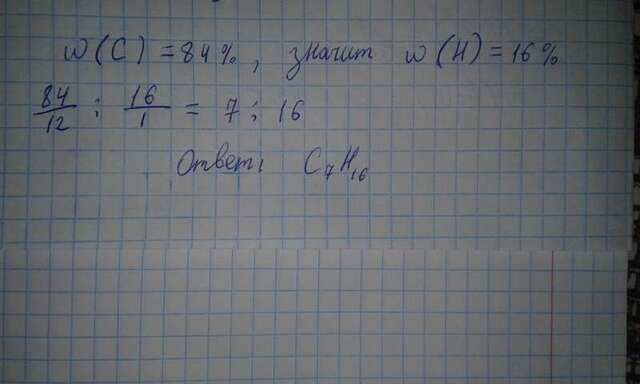 w(C) = 84%, значит w(H) = 16%
84/12 : 16/1 = 7 : 16
Ответ: C7H16